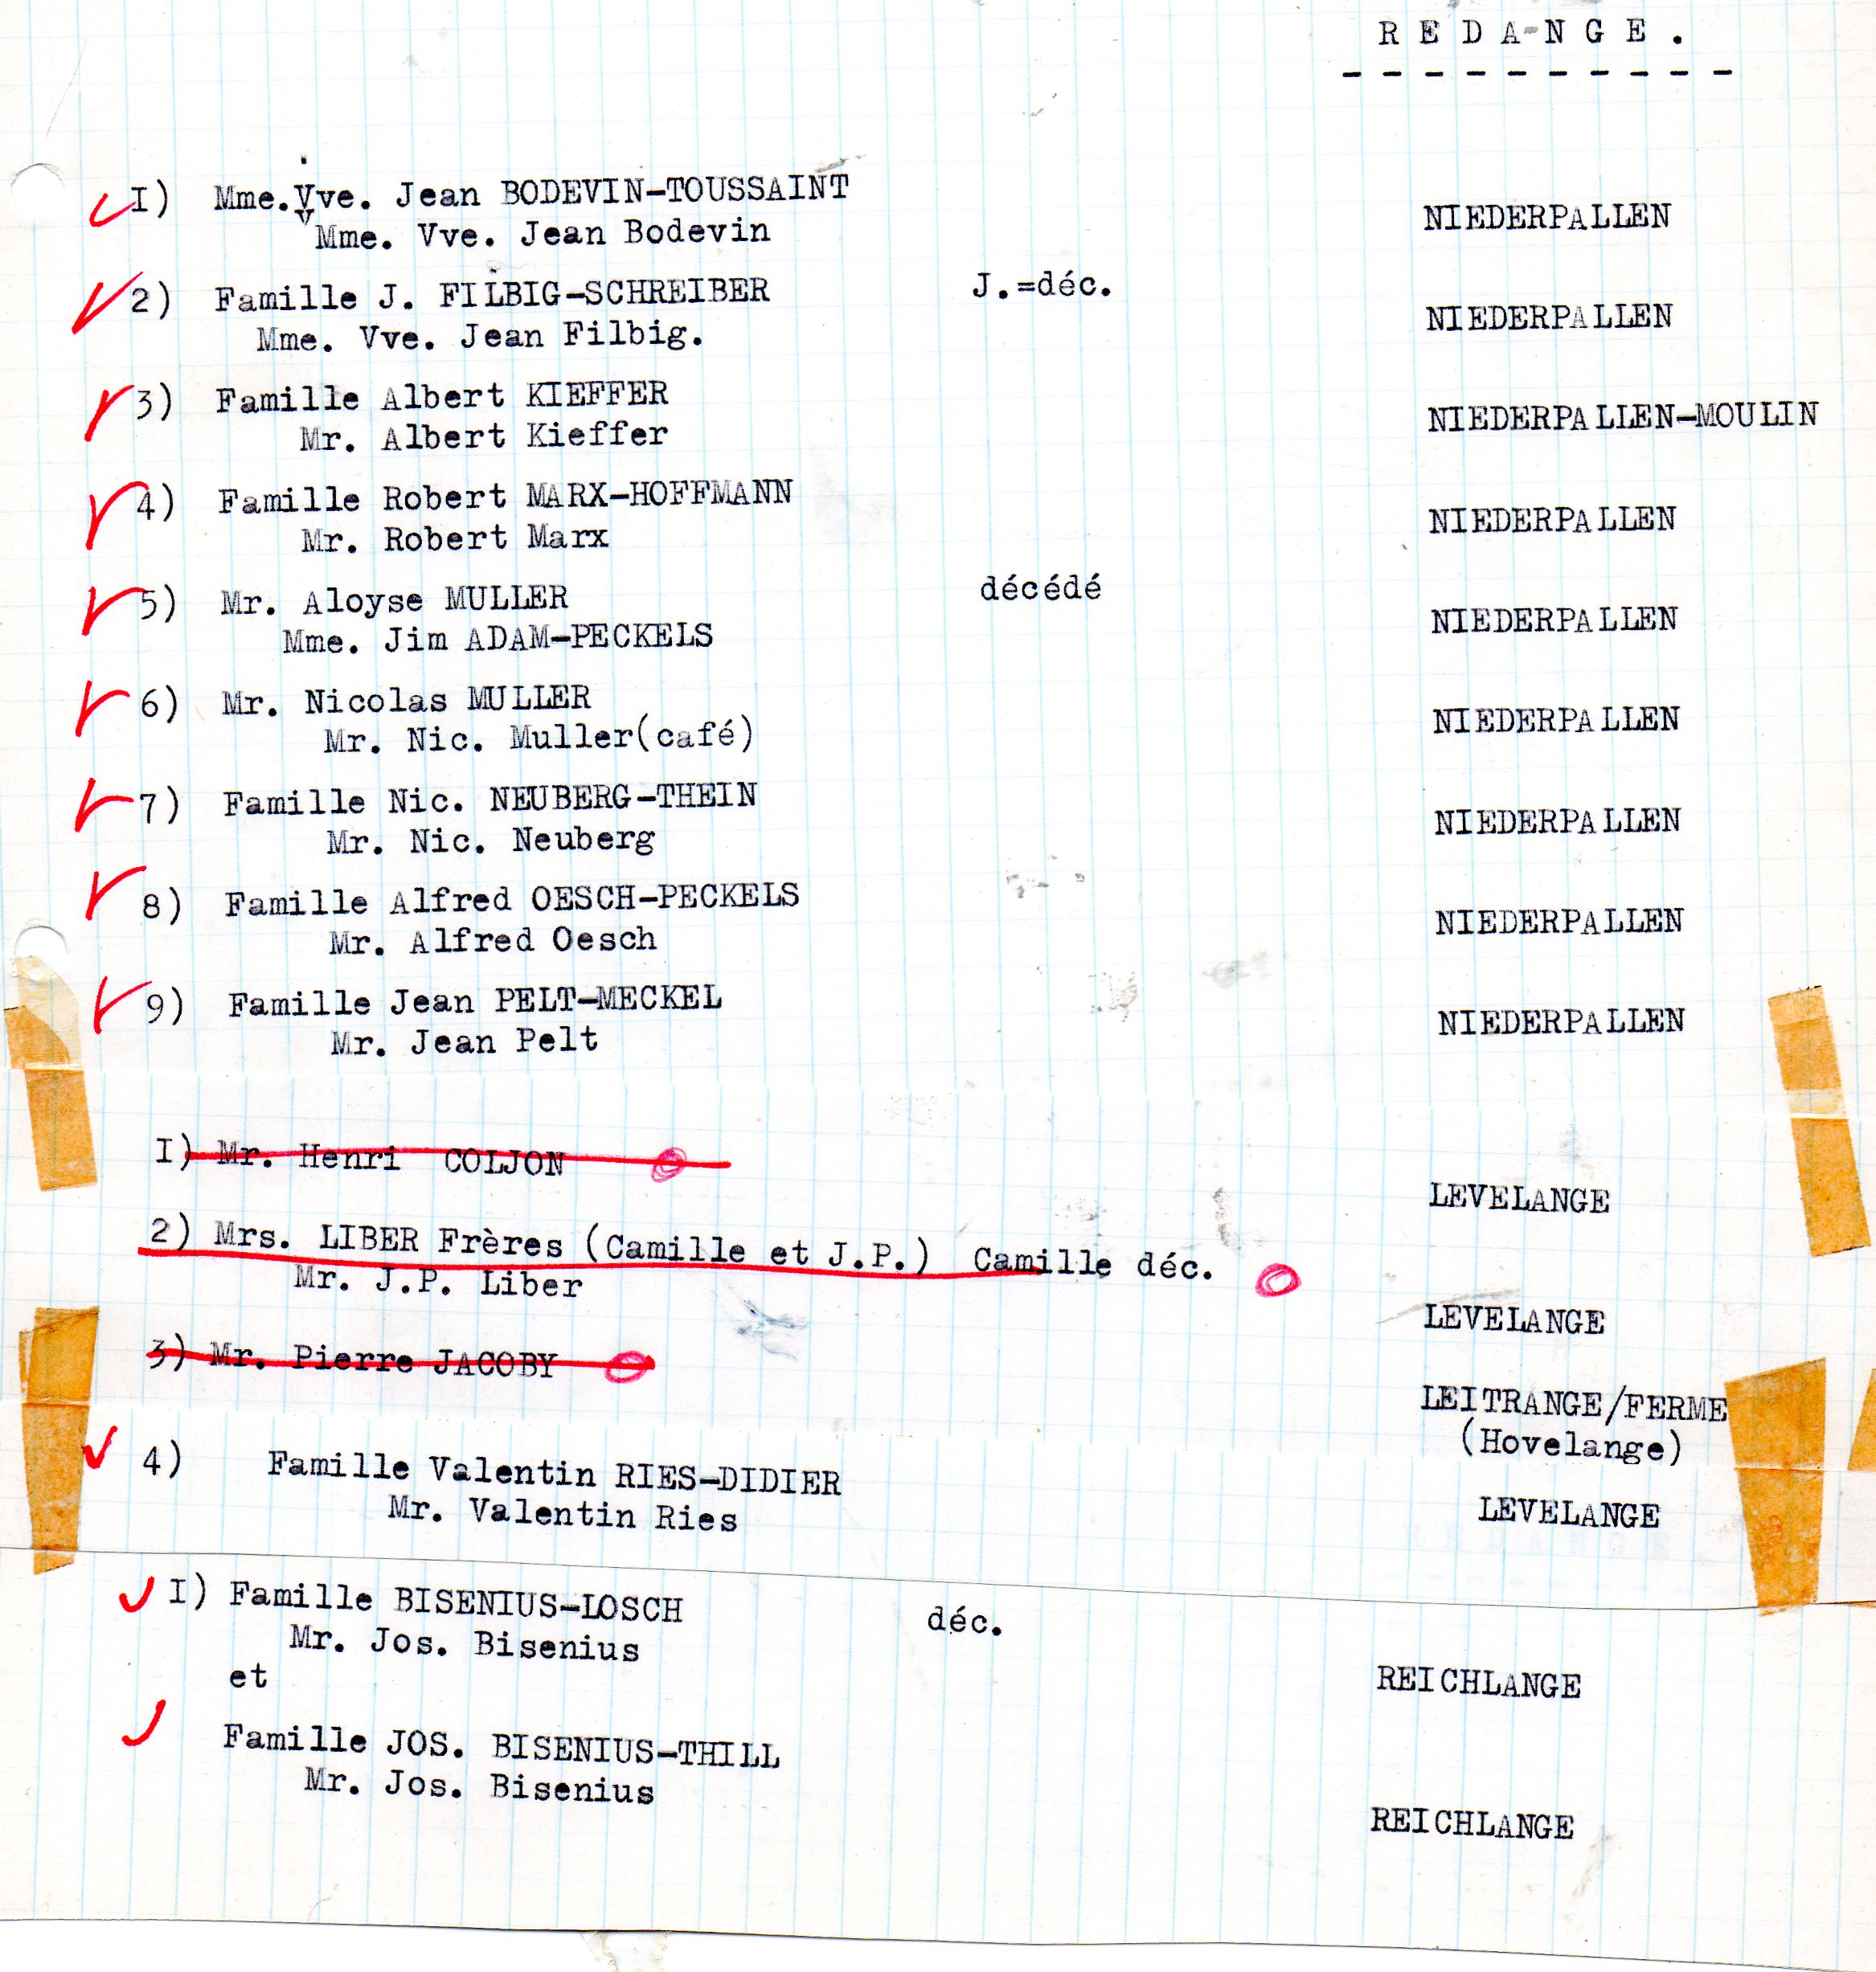 R E D A N G E .
- - - - - - - - - -
I) Mme.Vve. Jean BODEVIN-TOUSSAINT
Mme. Vve. Jean Bodevin
NIEDERPALLEN
2) Famille J. FILBIG-SCHREIBER J.=déc.
NIEDERPALLEN
Mme. Vve. Jean Filbig.
3) Famille Albert KIEFFER
NIEDERPALLEN-MOULIN
Mr. Albert Kieffer
4) Famille Robert MARX-HOFFMANN
NIEDERPALLEN
Mr. Robert Marx
5) Mr. Aloyse MULLER décédé
NIEDERPALLEN
Mme. Jim ADAM-PECKELS
6) Mr. Nicolas MULLER
NIEDERPALLEN
Mr. Nic. Muller(café)
7) Famille Nic. NEUBERG-THEIN
NIEDERPALLEN
Mr. Nic. Neuberg
8) Famille Alfred OESCH-PECKELS
NIEDERPALLEN
Mr. Alfred Oesch
9) Famille Jean PELT-MECKEL
NIEDERPALLEN
Mr. Jean Pelt
I) Mr. Henri COLJON
LEVELANGE
2) Mrs. LIBER Frères (Camille et J.P.) Camille déc.
Mr. J.P. Liber
LEVELANGE
3) Mr. Pierre JACOBY
LEITRANGE/FERME
(Hovelange)
4) Famille Valentin RIES-DIDIER
Mr. Valentin Ries
LEVELANGE
I) Famille BISENIUS-LOSCH déc.
Mr. Jos. Bisenius
REICHLANGE
et
Famille JOS. BISENIUS-THILL
Mr. Jos. Bisenius
REICHLANGE